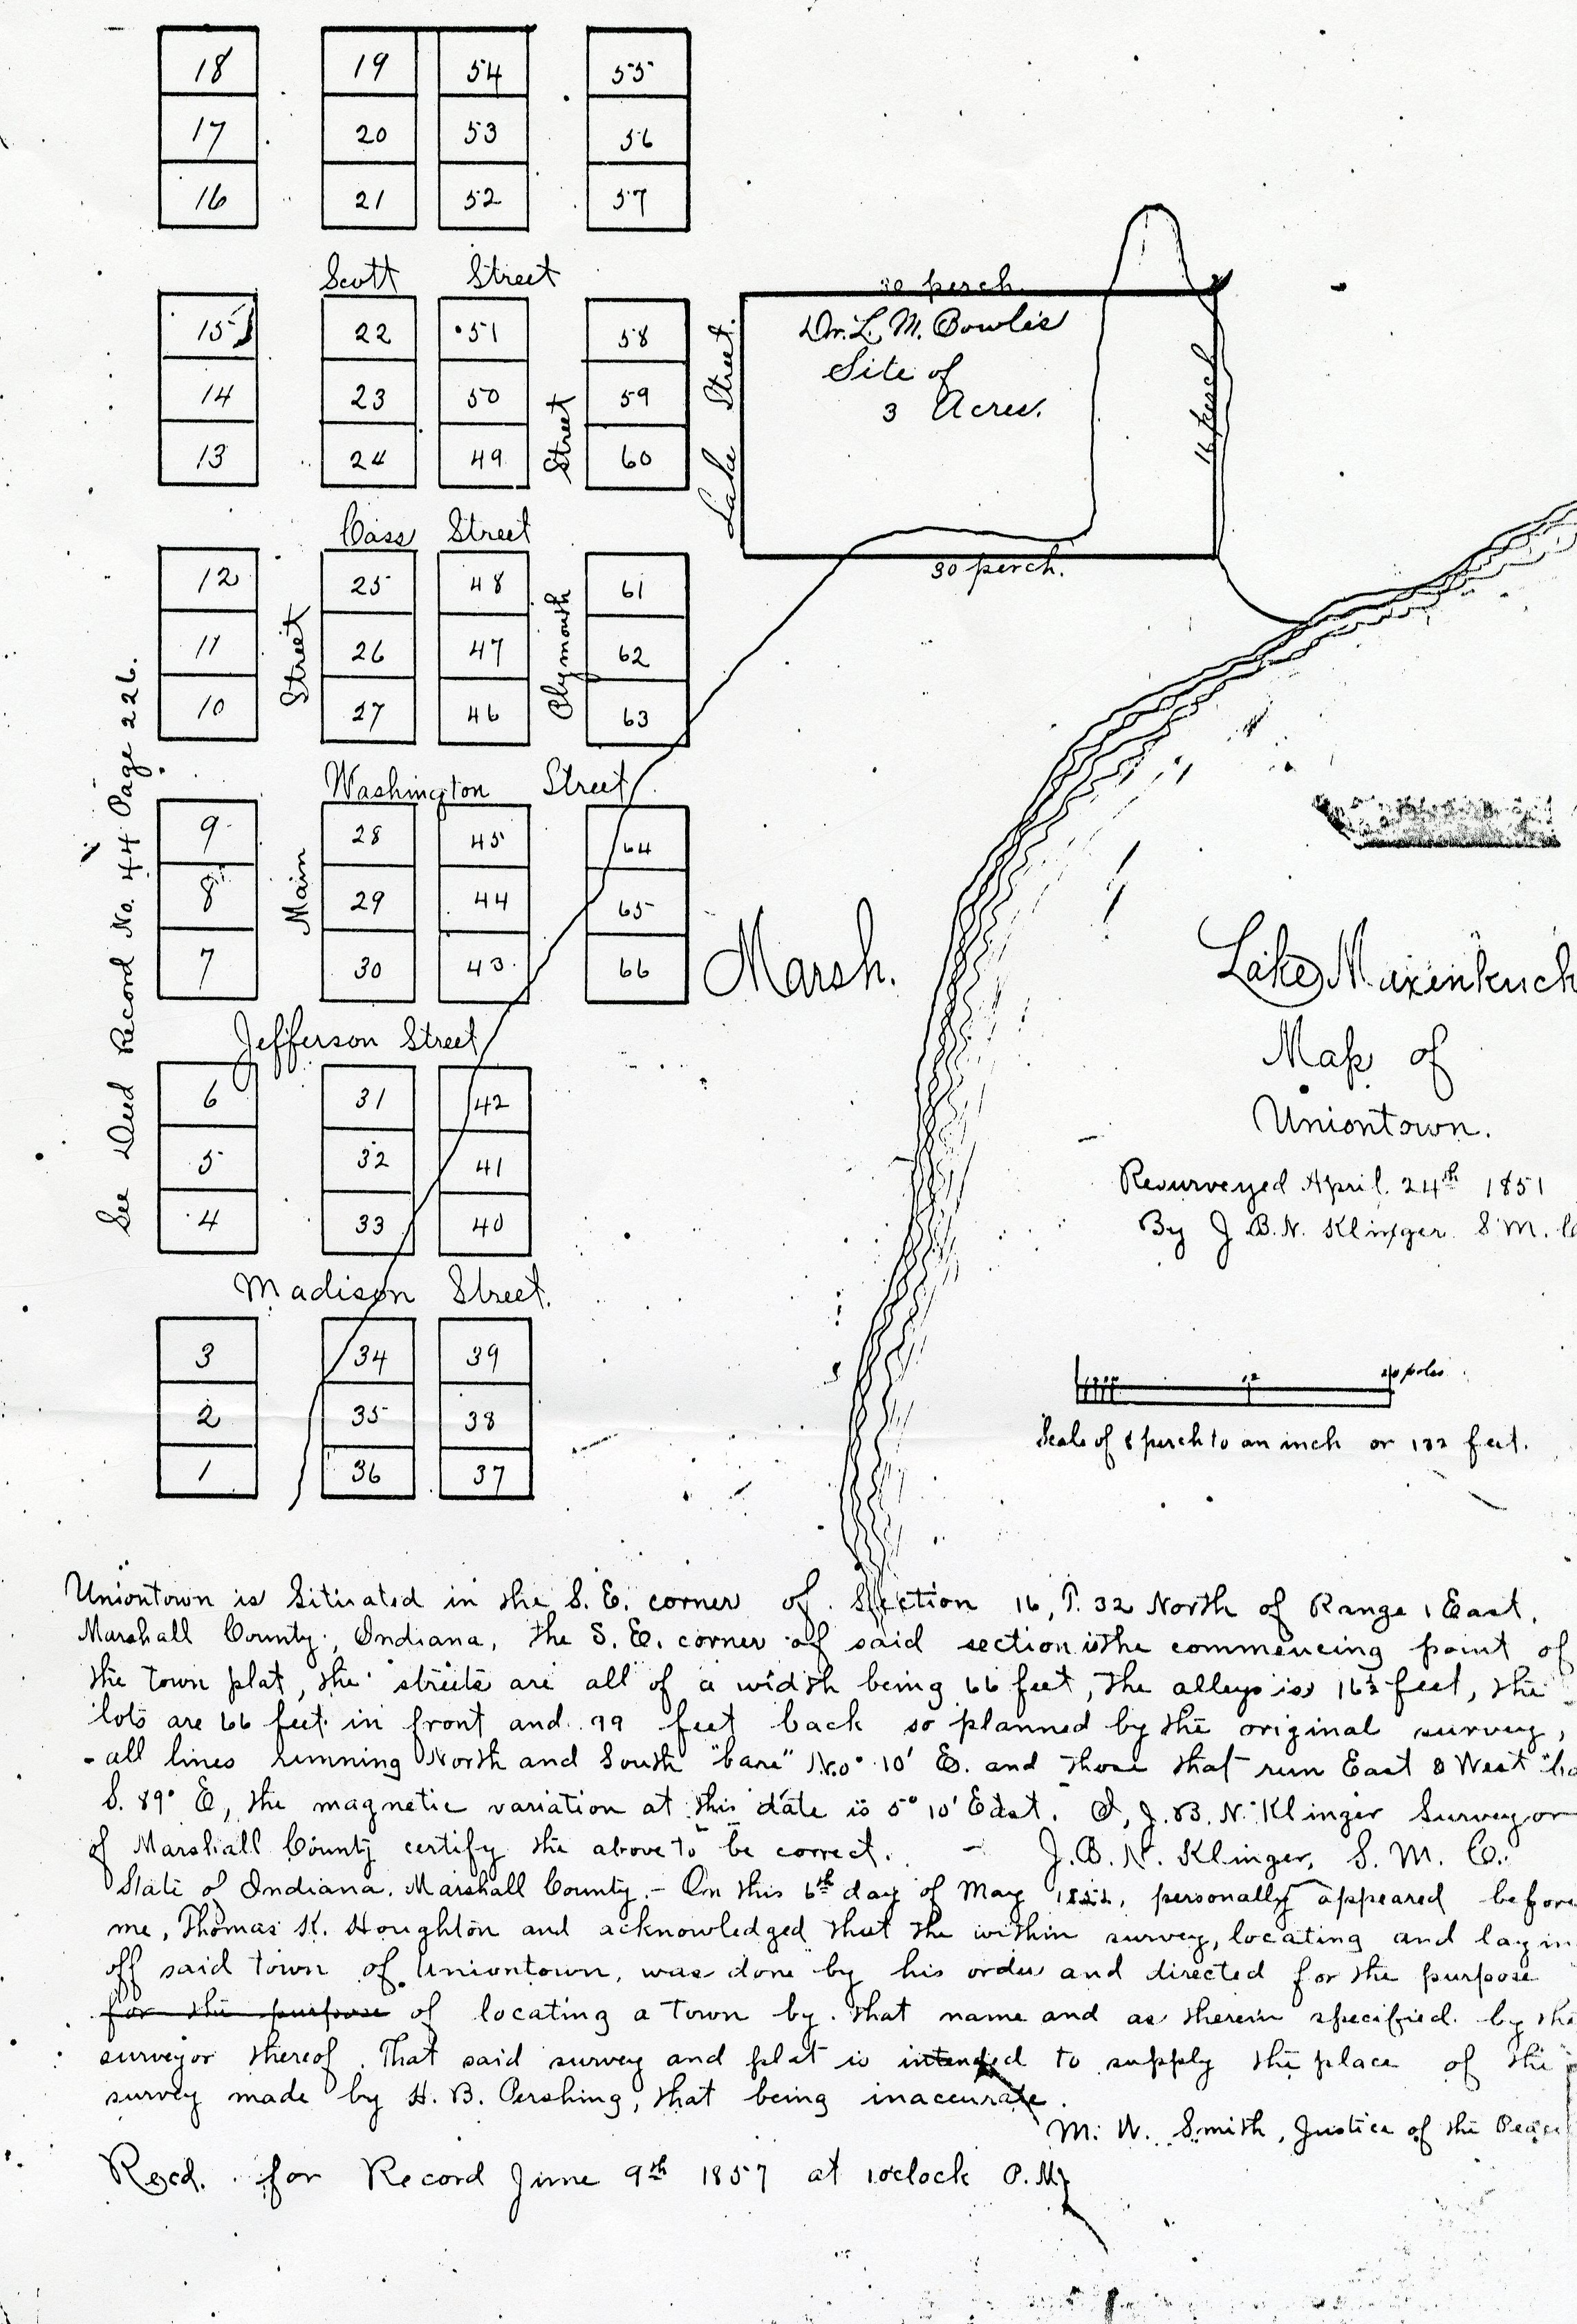 18 19 54 55
17 20 53 56
16 21 52 57
Scott Street
30 perch.
15 22 51 58
Dr. L. M. Bowles
Site of
3 Acres.
14 23 50 59
13 24 49 60
Lake Street.
16 perch
30 perch.
Cass Street
12 25 48 61
11 26 47 62
10 27 46 63
Plymouth Street
Washington Street
9 28 45 64
8 29 44 65
7 30 43 66
Main Street
See Deed Record No. 44 Page 226.
Marsh.
Lake Maxenkuch
Map of
Uniontown.
Resurveyed April. 24th 1851
By J. B. N. Klinger S. M. C
Jefferson Street
6 31 42
5 32 41
4 33 40
Madison Street.
3 34 39
2 35 38
1 36 37
poles
Scale of 8 perch to an inch or 132 feet.
Uniontown is Situated in the S. E. corner of Section 16, T. 32 North of Range 1 East,
Marshall County, Indiana, the S. E. corner of said section is the commencing point of
the town plat, the streets are all of a width being 66 feet, the alleys is 16½ feet, the
lots are 66 feet in front and 99 feet back so planned by the original survey,
all lines running North and South "bare" N. 0° 10' E. and those that run East & West
S. 89° E, the magnetic variation at this date is 5° 10' East. I, J. B. N. Klinger Surveyor
of Marshall County certify the above to be correct. - J. B. N. Klinger, S. M. C.
State of Indiana. Marshall County. - On this 6th day of May personally appeared before
me, Thomas K. Houghton and acknowledged that the within survey, locating and layin
off said town of Uniontown, was done by his order and directed for the purpose
for the purpose of locating a town by that name and as therein specified by the
surveyor thereof. That said survey and plat is intended to supply the place of the
survey made by H. B. Pershing, that being inaccurate.
M. W. Smith, Justice of the Peace
Recd. for Record June 9th 1857 at 1 o'clock P. M.